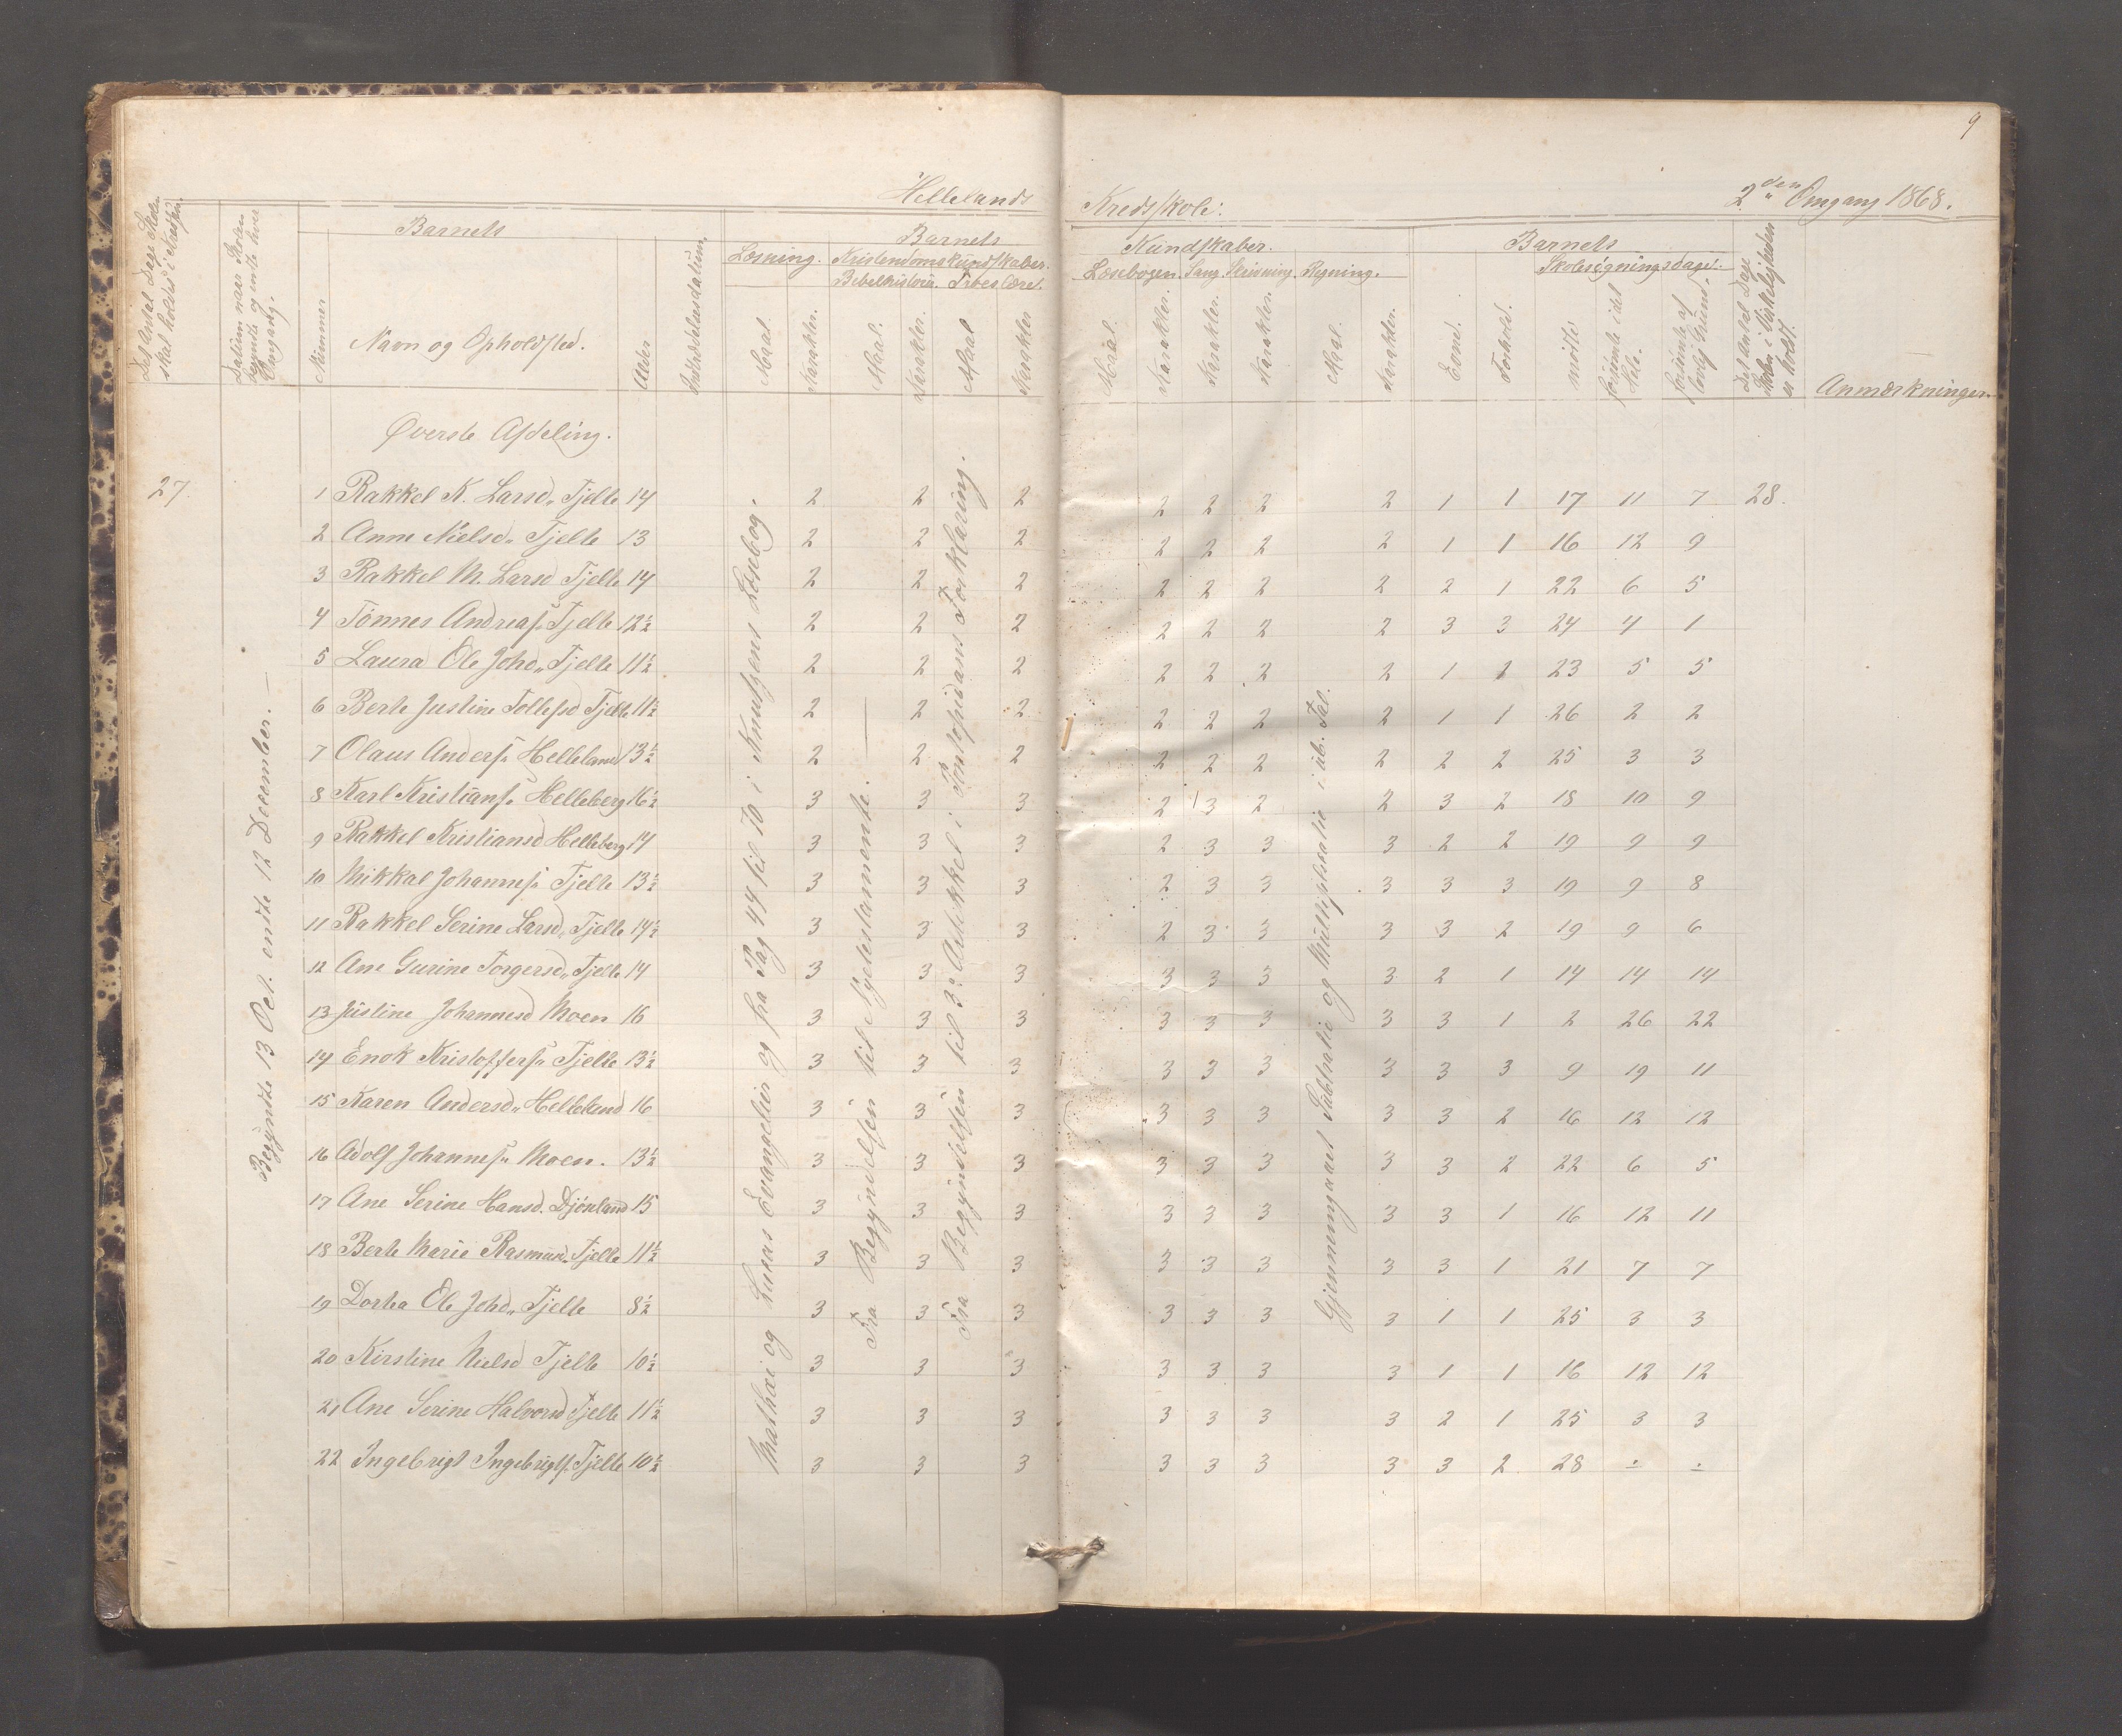 9
Hellelands Kredsskole.
2den Omgang 1868.
Det Antal Dage Skolen skal holdes i Kredsen.
Datum naar Skolen begyndte og endte hver Omgang.
Barnets
Nummer
Navn og Opholdsted.
Alder
Indtrædelsesdatum.
Barnets Kundskaber.
Læsning. Kristendomskundskaber.
Bibelhistorie. Troeslære.
Læsebogen. Sang. Skrivning. Regning.
Maal. Karakter. Maal. Karakter. Maal Karakter
Maal. Karakter. Karakter. Karakter. Maal. Karakter.
Barnets
Skolesøgningsdage.
Evne. Forhold. mødte forsømte i det Hele. forsømte af lovlig Grund.
Det Antal Dage Skolen i Virkeligheden er holdt.
Anmærkninger.
Øverste Afdeling.
27.
Begyndte 13 Oct. endte 12 December. —
Mathæi og Lukas Evangelier og fra Pag 44 til 70 i Knutzens Læsebog.
Fra Begyndelsen til Nytestamente. —
Fra Begyndelsen til 3die Artikkel i Pontoppidans Forklaring.
Gjennemgaaet Subtratie og Multiplikatie i ub. Tal.
1 Rakkel K. Larsd. Tjelte 14 2 2 2 2 2 2 2 1 1 17 11 7 28.
2 Anne Nielsd. Tjelte 13 2 2 2 2 2 2 2 1 1 16 12 9
3 Rakkel M. Larsd Tjelte 14 2 2 2 2 2 2 2 2 1 22 6 5
4 Tønnes Andreas. Tjelte 12½ 2 2 2 2 2 2 2 3 3 24 4 1
5 Laura Ole Johd. Tjelte 11½ 2 2 2 2 2 2 2 1 1 23 5 5
6 Berte Justine Tollefsd Tjelte 11½ 2 2 2 2 2 2 2 1 1 26 2 2
7 Olaus Anders. Helleland 13½ 2 2 2 2 2 2 2 2 2 25 3 3
8 Karl Kristians. Helleberg 16½ 3 3 3 2 3 2 2 3 2 18 10 9
9 Rakkel Kristiansd Helleberg 14 3 3 3 2 3 3 3 2 2 19 9 9
10 Mikkal Johannes. Tjelte 13½ 3 3 3 2 3 3 3 3 3 19 9 8
11 Rakkel Serine Larsd. Tjelte 14½ 3 3 3 2 3 3 3 3 2 19 9 6
12 Ane Gurine Torgersd. Tjelte 14 3 3 3 3 3 3 3 2 1 14 14 14
13 Justine Johannesd Moen 16 3 3 3 3 3 3 3 3 1 2 26 22
14 Enok Kristoffers. Tjelte 13½ 3 3 3 3 3 3 3 3 3 9 19 11
15 Karen Andersd. Helleland 16 3 3 3 3 3 3 3 3 2 16 12 12
16 Adolf Johannes. Moen. 13½ 3 3 3 3 3 3 3 3 2 22 6 5
17 Ane Serine Hansd. Djønland 15 3 3 3 3 3 3 3 3 1 16 12 11
18 Berte Marie Rasmusd. Tjelte 11½ 3 3 3 3 3 3 3 3 1 21 7 7
19 Dortea Ole Johd. Tjelte 8½ 3 3 3 3 3 3 3 1 1 25 3 3
20 Kirstine Nielsd Tjelte 10½ 3 3 3 3 3 3 3 1 1 16 12 12
21 Ane Serine Halvorsd Tjelte 11½ 3 3 3 3 3 3 3 2 1 25 3 3
22 Ingebrigt Ingebrigts. Tjelte 10½ 3 3 3 3 3 3 3 3 2 28 ÷ ÷